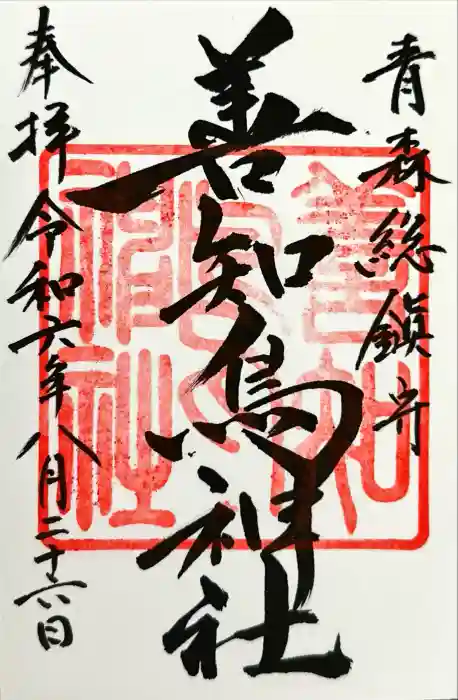 青森総鎮守
善知鳥神社
奉拝 令和六年八月二十六日
善知鳥神社